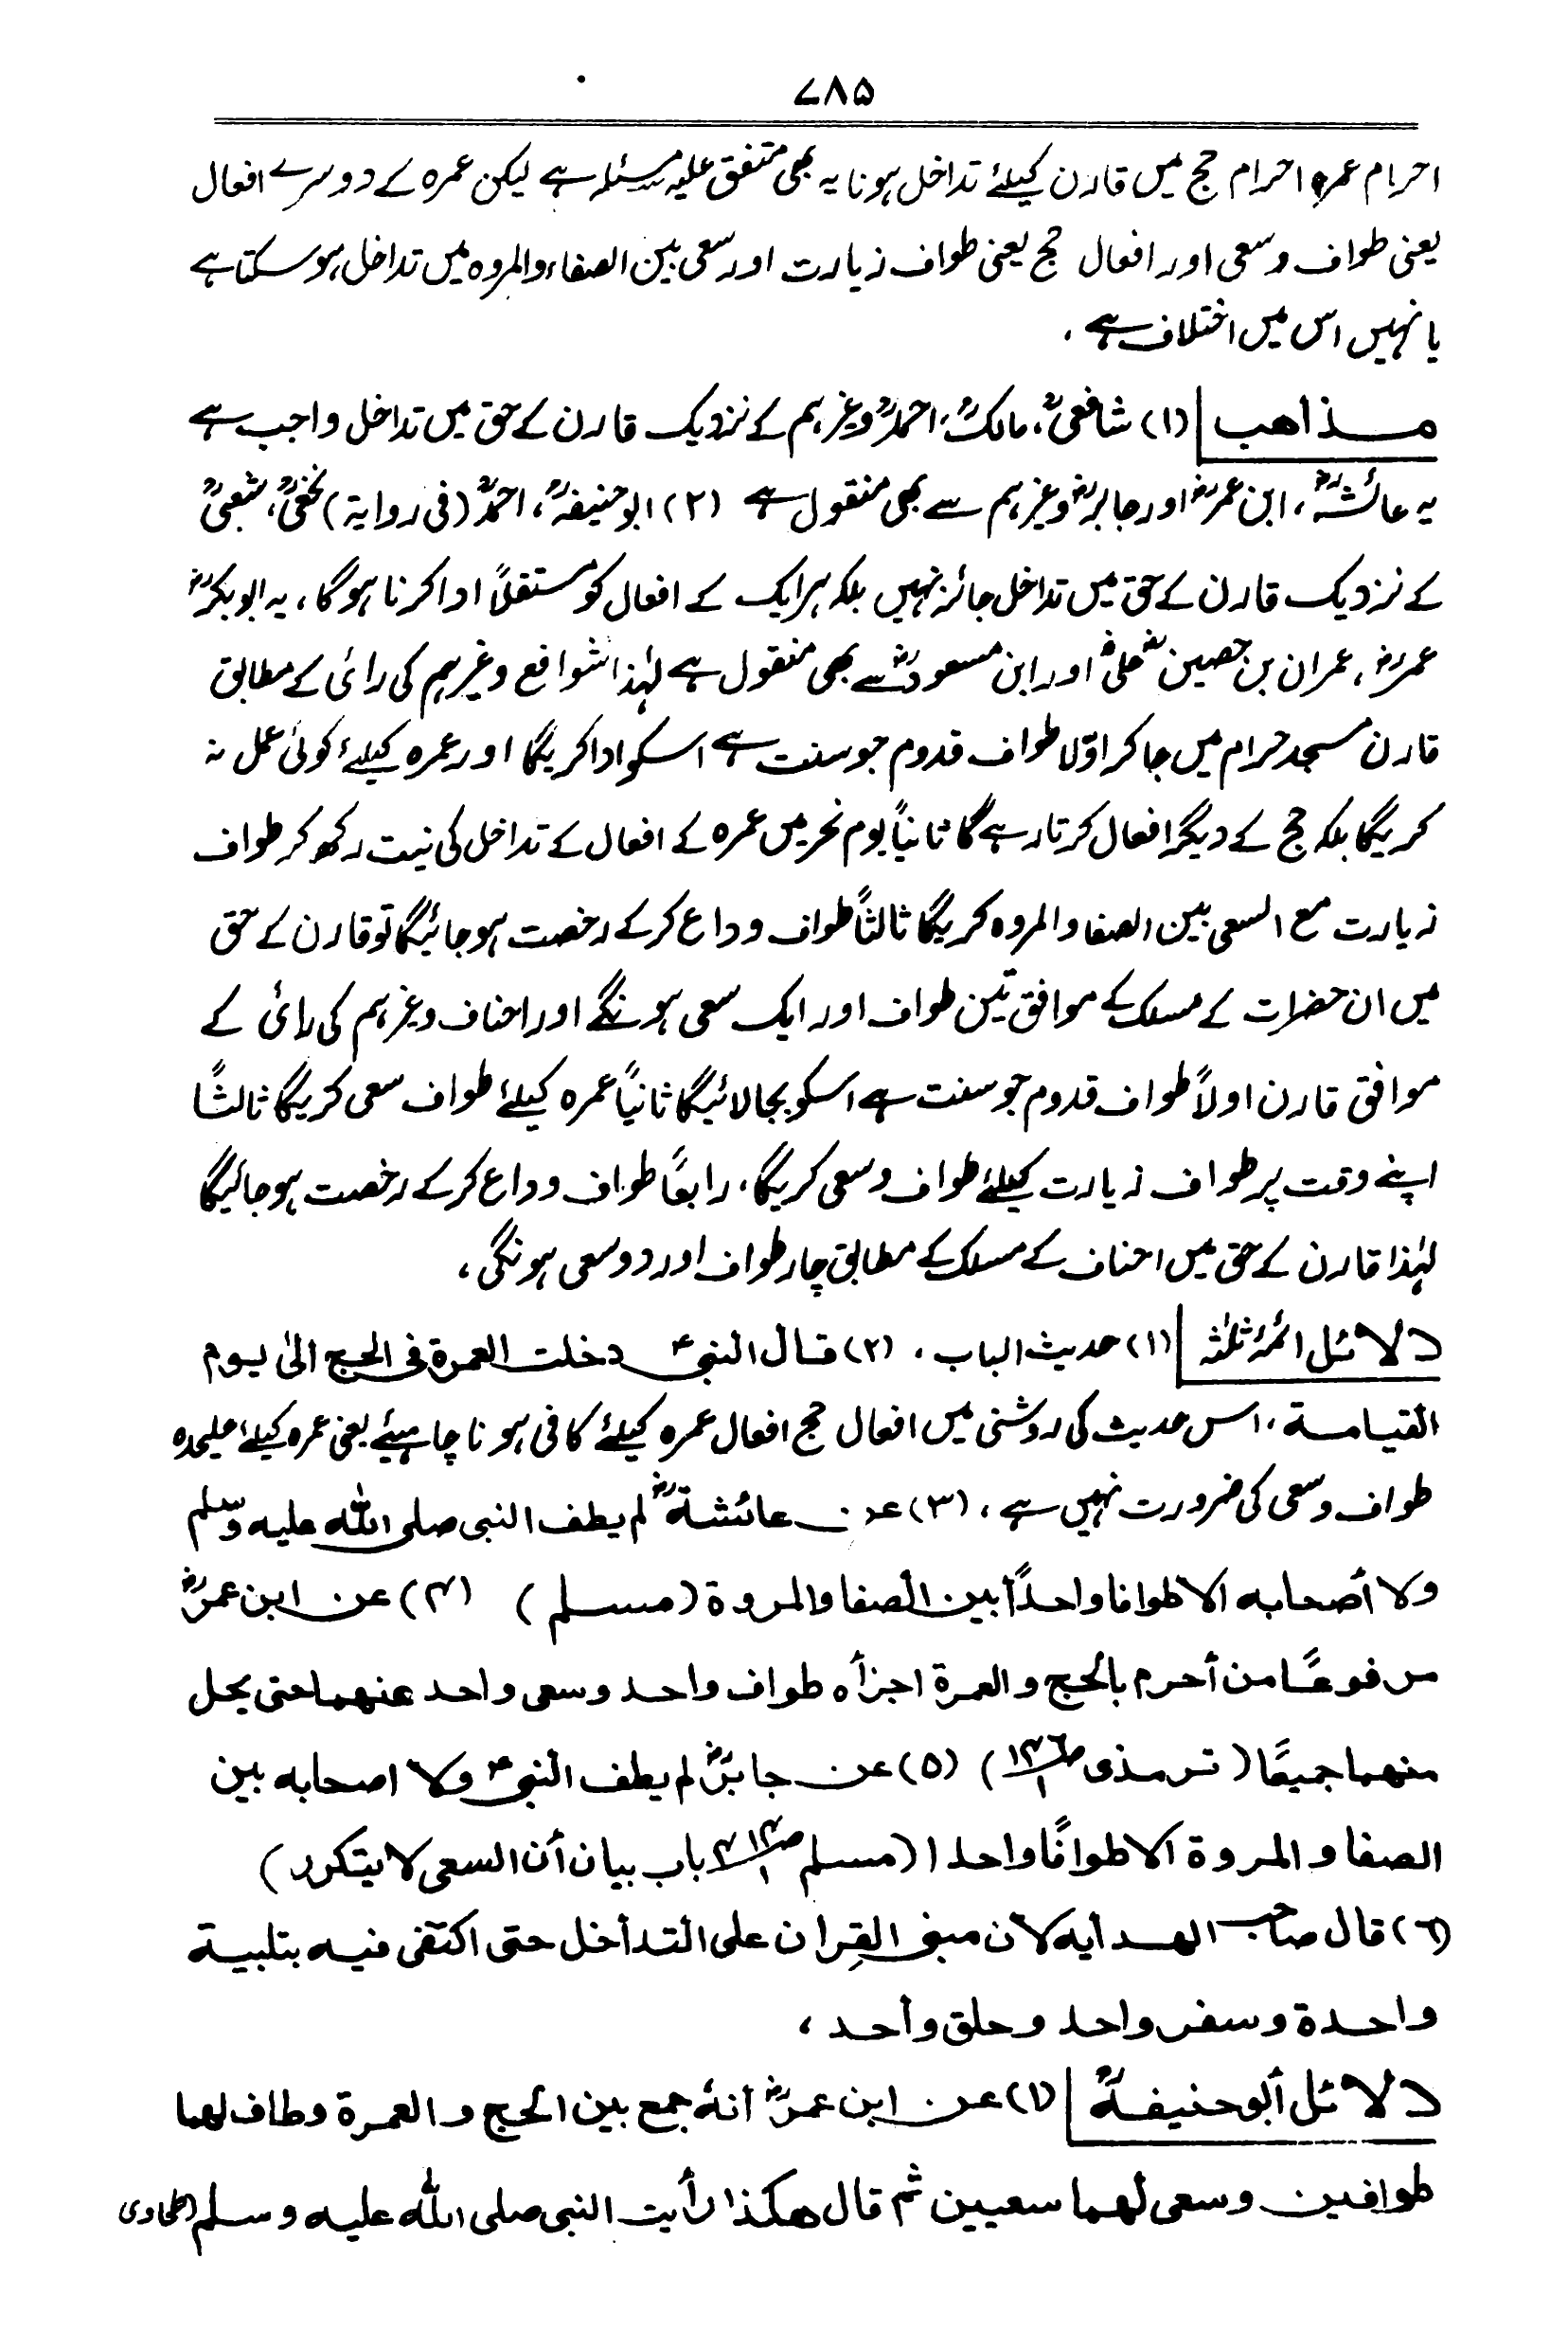 ۷۸۵
احرام عمرہ احرام حج میں قارن کیلئے تداخل ہونا یہ بھی متفق علیہ مسئلہ ہے لیکن عمرہ کے دوسرے افعال
یعنی طواف وسعی اور افعال حج یعنی طواف زیارت اور سعی بین الصفاء والمروہ میں تداخل ہوسکتا ہے
یا نہیں اس میں اختلاف ہے ،
مذاھب (۱) شافعیؒ، مالکؒ، احمدؒ وغیرہم کے نزدیک قارن کے حق میں تداخل واجب ہے
یہ عائشہؓ، ابن عمرؓ اور جابرؓ وغیرہم سے بھی منقول ہے (۲) ابوحنیفہؒ، احمدؒ (فی روایۃ) نخعیؒ، شعبیؒ
کے نزدیک قارن کے حق میں تداخل جائز نہیں بلکہ ہر ایک کے افعال کو مستقلاً ادا کرنا ہوگا ، یہ ابوبکرؓ
عمرؓ، عمران بن حصینؓ علیؓ اور ابن مسعودؓ سے بھی منقول ہے لہٰذا شوافع وغیرہم کی رائ کے مطابق
قارن مسجد حرام میں جاکر اوّلا طواف قدوم جو سنت ہے اسکو ادا کریگا اور عمرہ کیلئے کوئی عمل نہ
کریگا بلکہ حج کے دیگر افعال کرتا رہے گا ثانیاً یوم نحر میں عمرہ کے افعال کے تداخل کی نیت رکھ کر طواف
زیارت مع السعی بین الصفا والمروہ کریگا ثالثاً طواف وداع کرکے رخصت ہوجائیگا تو قارن کے حق
میں ان حضرات کے مسلک کے موافق تین طواف اور ایک سعی ہونگے اور احناف وغیرہم کی رائ کے
موافق قارن اولاً طواف قدوم جو سنت ہے اسکو بجا لائیگا ثانیاً عمرہ کیلئے طواف سعی کریگا ثالثاً
اپنے وقت پر طواف زیارت کیلئے طواف وسعی کریگا، رابعاً طواف وداع کرکے رخصت ہوجائیگا
لہٰذا قارن کے حق میں احناف کے مسلک کے مطابق چار طواف اور دو سعی ہونگی ،
دلائل ائمۂ ثلثہ (۱) حدیث الباب ، (۲) قال النبیؐ دخلت العمرة فی الحج الیٰ یوم
القیامة ، اس حدیث کی روشنی میں افعال حج افعال عمرہ کیلئے کافی ہونا چاہیئے یعنی عمرہ کیلئے علیحدہ
طواف وسعی کی ضرورت نہیں ہے ، (۳) عن عائشةؓ لم یطف النبی صلی اللہ علیہ وسلم
ولا أصحابه الا طوافا واحداً بین الصفا والمروة (مسلم) (۴) عن ابن عمرؓ
مرفوعًا من أحرم بالحج والعمرة اجزأه طواف واحد وسعی واحد عنهما حتی یحل
منهما جمیعًا (ترمذی ص۱۴۶/۱) (۵) عن جابرؓ لم یطف النبیؐ ولا اصحابه بین
الصفا والمروة الا طوافًا واحدا (مسلم ص۴۱۴/۱ باب بیان أن السعی لا یتکرر)
(٦) قال صاحب الهدایه لان مبنی القِران علی التداخل حتی اکتفی فیه بتلبیة
واحدة وسفر واحد وحلق واحد ،
دلائل أبوحنیفةؒ (۱) عن ابن عمرؓ أنهٗ جمع بین الحج والعمرة وطاف لهما
طوافین وسعی لهما سعیین ثم قال هکذا رأیت النبی صلی اللہ علیه وسلم (طحاوی